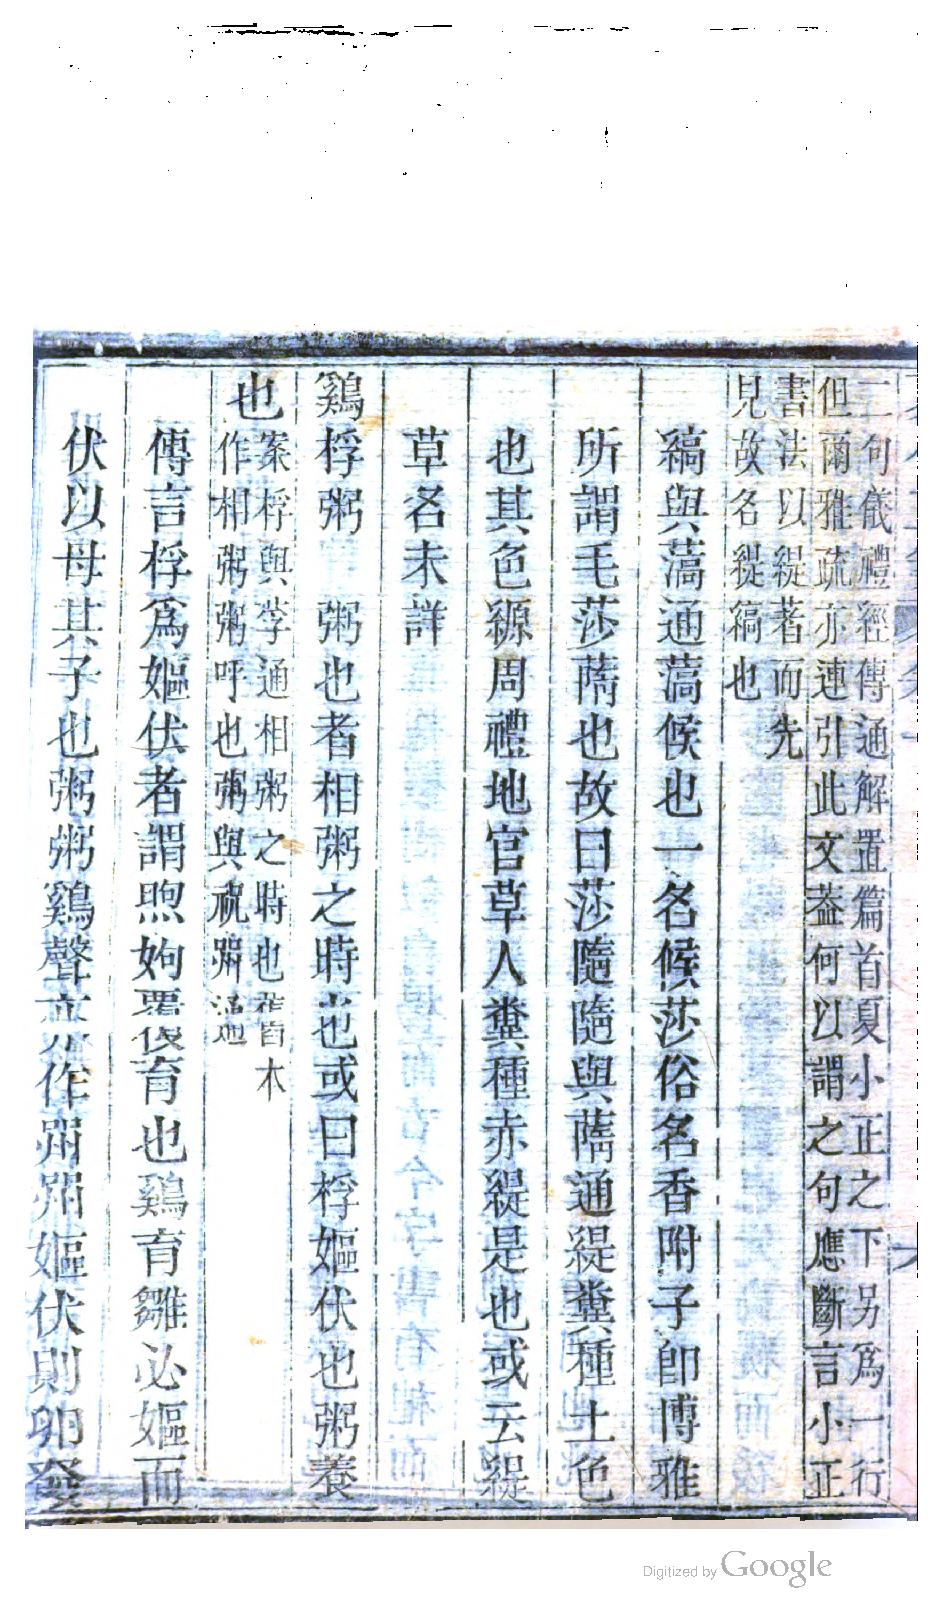 二句儀禮經傳通解置篇首夏小正之下另爲一行
但爾雅疏亦連引此文葢何以謂之句應斷言小正
書法以緹著而先
見故名緹縞也
縞與薃通薃候也一名候莎俗名香附子卽博雅
所謂毛莎蓆也故曰莎隨隨與蓆通緹糞種土色
也其色縓周禮地官草人糞種赤緹是也或云緹
草名未詳
鷄桴粥 粥也者相粥之時也或曰桴嫗伏也粥養
也
案桴與孚通相粥之時也舊本
作相粥粥呼也粥與祝喌通
傳言桴爲嫗伏者謂煦姁覆育也鷄育雛必嫗而
伏以母其子也粥粥鷄聲亦作喌喌嫗伏則卵發
Digitized by Google